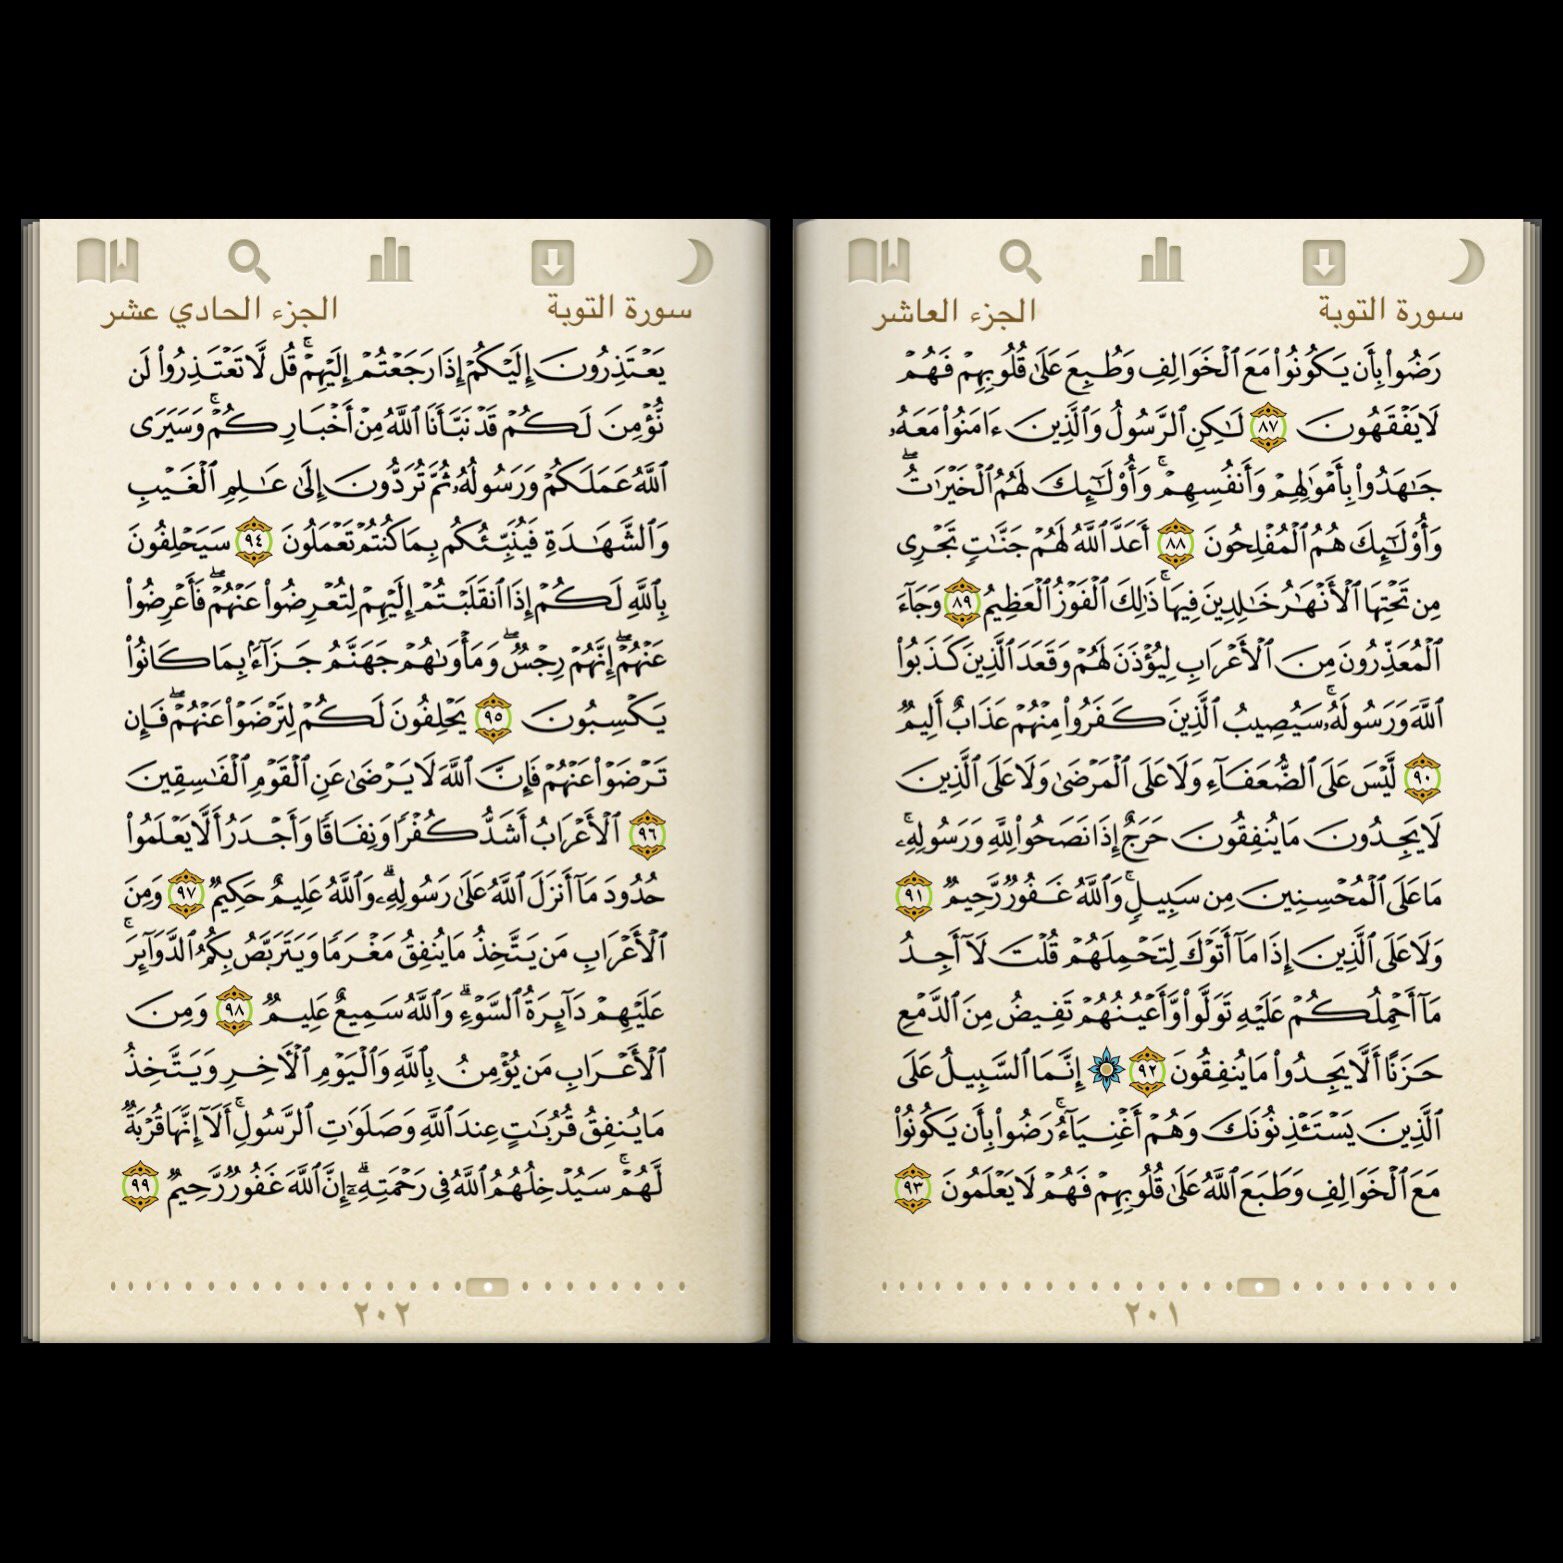 سورة التوبة الجزء العاشر
رَضُوا۟ بِأَن يَكُونُوا۟ مَعَ ٱلْخَوَالِفِ وَطُبِعَ عَلَىٰ قُلُوبِهِمْ فَهُمْ
لَا يَفْقَهُونَ ٨٧ لَـٰكِنِ ٱلرَّسُولُ وَٱلَّذِينَ ءَامَنُوا۟ مَعَهُۥ
جَـٰهَدُوا۟ بِأَمْوَٰلِهِمْ وَأَنفُسِهِمْ ۚ وَأُو۟لَـٰٓئِكَ لَهُمُ ٱلْخَيْرَٰتُ ۖ
وَأُو۟لَـٰٓئِكَ هُمُ ٱلْمُفْلِحُونَ ٨٨ أَعَدَّ ٱللَّهُ لَهُمْ جَنَّـٰتٍ تَجْرِى
مِن تَحْتِهَا ٱلْأَنْهَـٰرُ خَـٰلِدِينَ فِيهَا ۚ ذَٰلِكَ ٱلْفَوْزُ ٱلْعَظِيمُ ٨٩ وَجَآءَ
ٱلْمُعَذِّرُونَ مِنَ ٱلْأَعْرَابِ لِيُؤْذَنَ لَهُمْ وَقَعَدَ ٱلَّذِينَ كَذَبُوا۟
ٱللَّهَ وَرَسُولَهُۥ ۚ سَيُصِيبُ ٱلَّذِينَ كَفَرُوا۟ مِنْهُمْ عَذَابٌ أَلِيمٌ
٩٠ لَّيْسَ عَلَى ٱلضُّعَفَآءِ وَلَا عَلَى ٱلْمَرْضَىٰ وَلَا عَلَى ٱلَّذِينَ
لَا يَجِدُونَ مَا يُنفِقُونَ حَرَجٌ إِذَا نَصَحُوا۟ لِلَّهِ وَرَسُولِهِۦ ۚ
مَا عَلَى ٱلْمُحْسِنِينَ مِن سَبِيلٍ ۚ وَٱللَّهُ غَفُورٌ رَّحِيمٌ ٩١
وَلَا عَلَى ٱلَّذِينَ إِذَا مَآ أَتَوْكَ لِتَحْمِلَهُمْ قُلْتَ لَآ أَجِدُ
مَآ أَحْمِلُكُمْ عَلَيْهِ تَوَلَّوا۟ وَّأَعْيُنُهُمْ تَفِيضُ مِنَ ٱلدَّمْعِ
حَزَنًا أَلَّا يَجِدُوا۟ مَا يُنفِقُونَ ٩٢ ۞ إِنَّمَا ٱلسَّبِيلُ عَلَى
ٱلَّذِينَ يَسْتَـْٔذِنُونَكَ وَهُمْ أَغْنِيَآءُ ۚ رَضُوا۟ بِأَن يَكُونُوا۟
مَعَ ٱلْخَوَالِفِ وَطَبَعَ ٱللَّهُ عَلَىٰ قُلُوبِهِمْ فَهُمْ لَا يَعْلَمُونَ ٩٣
٢٠١
سورة التوبة الجزء الحادي عشر
يَعْتَذِرُونَ إِلَيْكُمْ إِذَا رَجَعْتُمْ إِلَيْهِمْ ۚ قُل لَّا تَعْتَذِرُوا۟ لَن
نُّؤْمِنَ لَكُمْ قَدْ نَبَّأَنَا ٱللَّهُ مِنْ أَخْبَارِكُمْ ۚ وَسَيَرَى
ٱللَّهُ عَمَلَكُمْ وَرَسُولُهُۥ ثُمَّ تُرَدُّونَ إِلَىٰ عَـٰلِمِ ٱلْغَيْبِ
وَٱلشَّهَـٰدَةِ فَيُنَبِّئُكُم بِمَا كُنتُمْ تَعْمَلُونَ ٩٤ سَيَحْلِفُونَ
بِٱللَّهِ لَكُمْ إِذَا ٱنقَلَبْتُمْ إِلَيْهِمْ لِتُعْرِضُوا۟ عَنْهُمْ ۖ فَأَعْرِضُوا۟
عَنْهُمْ ۖ إِنَّهُمْ رِجْسٌ ۖ وَمَأْوَىٰهُمْ جَهَنَّمُ جَزَآءًۢ بِمَا كَانُوا۟
يَكْسِبُونَ ٩٥ يَحْلِفُونَ لَكُمْ لِتَرْضَوْا۟ عَنْهُمْ ۖ فَإِن
تَرْضَوْا۟ عَنْهُمْ فَإِنَّ ٱللَّهَ لَا يَرْضَىٰ عَنِ ٱلْقَوْمِ ٱلْفَـٰسِقِينَ
٩٦ ٱلْأَعْرَابُ أَشَدُّ كُفْرًا وَنِفَاقًا وَأَجْدَرُ أَلَّا يَعْلَمُوا۟
حُدُودَ مَآ أَنزَلَ ٱللَّهُ عَلَىٰ رَسُولِهِۦ ۗ وَٱللَّهُ عَلِيمٌ حَكِيمٌ ٩٧ وَمِنَ
ٱلْأَعْرَابِ مَن يَتَّخِذُ مَا يُنفِقُ مَغْرَمًا وَيَتَرَبَّصُ بِكُمُ ٱلدَّوَآئِرَ ۚ
عَلَيْهِمْ دَآئِرَةُ ٱلسَّوْءِ ۗ وَٱللَّهُ سَمِيعٌ عَلِيمٌ ٩٨ وَمِنَ
ٱلْأَعْرَابِ مَن يُؤْمِنُ بِٱللَّهِ وَٱلْيَوْمِ ٱلْـَٔاخِرِ وَيَتَّخِذُ
مَا يُنفِقُ قُرُبَـٰتٍ عِندَ ٱللَّهِ وَصَلَوَٰتِ ٱلرَّسُولِ ۚ أَلَآ إِنَّهَا قُرْبَةٌ
لَّهُمْ ۚ سَيُدْخِلُهُمُ ٱللَّهُ فِى رَحْمَتِهِۦٓ ۗ إِنَّ ٱللَّهَ غَفُورٌ رَّحِيمٌ ٩٩
٢٠٢